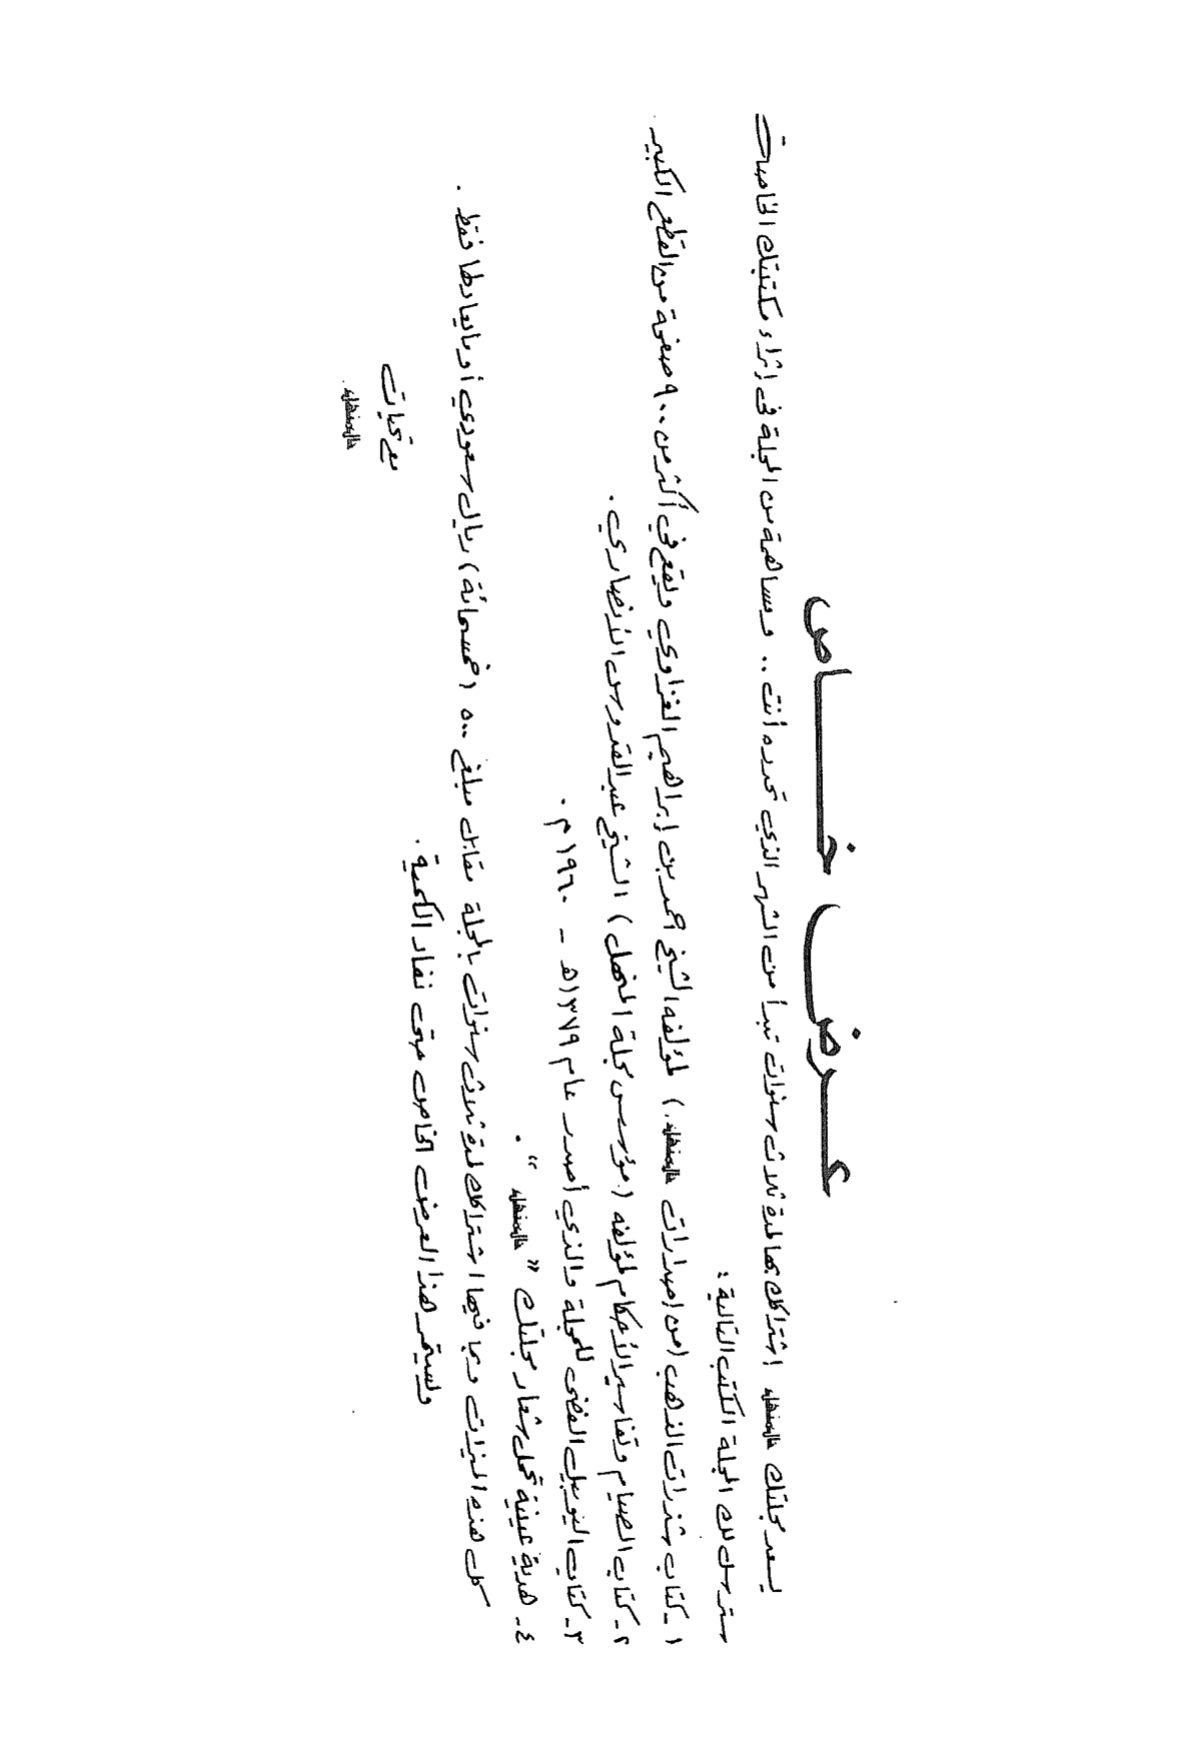 عرض خاص
يسعد مجلتك المنهل اشتراكك بها لمدة ثلاث سنوات تبدأ من الشهر الذي تحدده أنت .. ومساهمة من المجلة فى إثراء مكتبتك الخاصة
سترسل لك المجلة الكتب التالية :
١ - كتاب شذرات الذهب (من إصدارات المنهل) لمؤلفه الشيخ أحمد بن إبراهيم الغزاوي ويقع في أكثر من ٩٠٠ صفحة من القطع الكبير .
٢ - كتاب الصيام وتفاسير الأحكام لمؤلفه (مؤسس مجلة المنهل) الشيخ عبدالقدوس الأنصاري .
٣ - كتاب اليوبيل الفضى للمجلة والذي أصدر عام ١٣٧٩هـ - ١٩٦٠م .
٤ - هدية عينية تحمل شعار مجلتك " المنهل " .
كل هذه الميزات وبما فيها اشتراكك لمدة ثلاث سنوات بالمجلة مقابل مبلغ ٥٠٠ (خمسمائة) ريال سعودي أو ما يعادلها فقط .
وليستمر هذا العرض الخاص حتى نفاد الكمية .
مع تحيات
المنهل